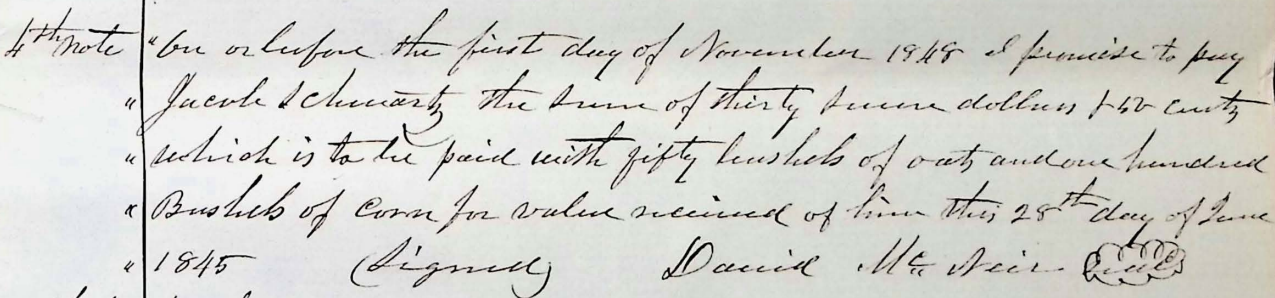 4th note "On or before the first day of November 1848 I promise to pay
" Jacob Schwartz the sum of thirty seven dollars & 50 cents
" which is to be paid with fifty bushels of oats and one hundred
" Bushels of Corn for value received of him this 28th day of June
" 1845 (Signed) David Mc Neir Seal